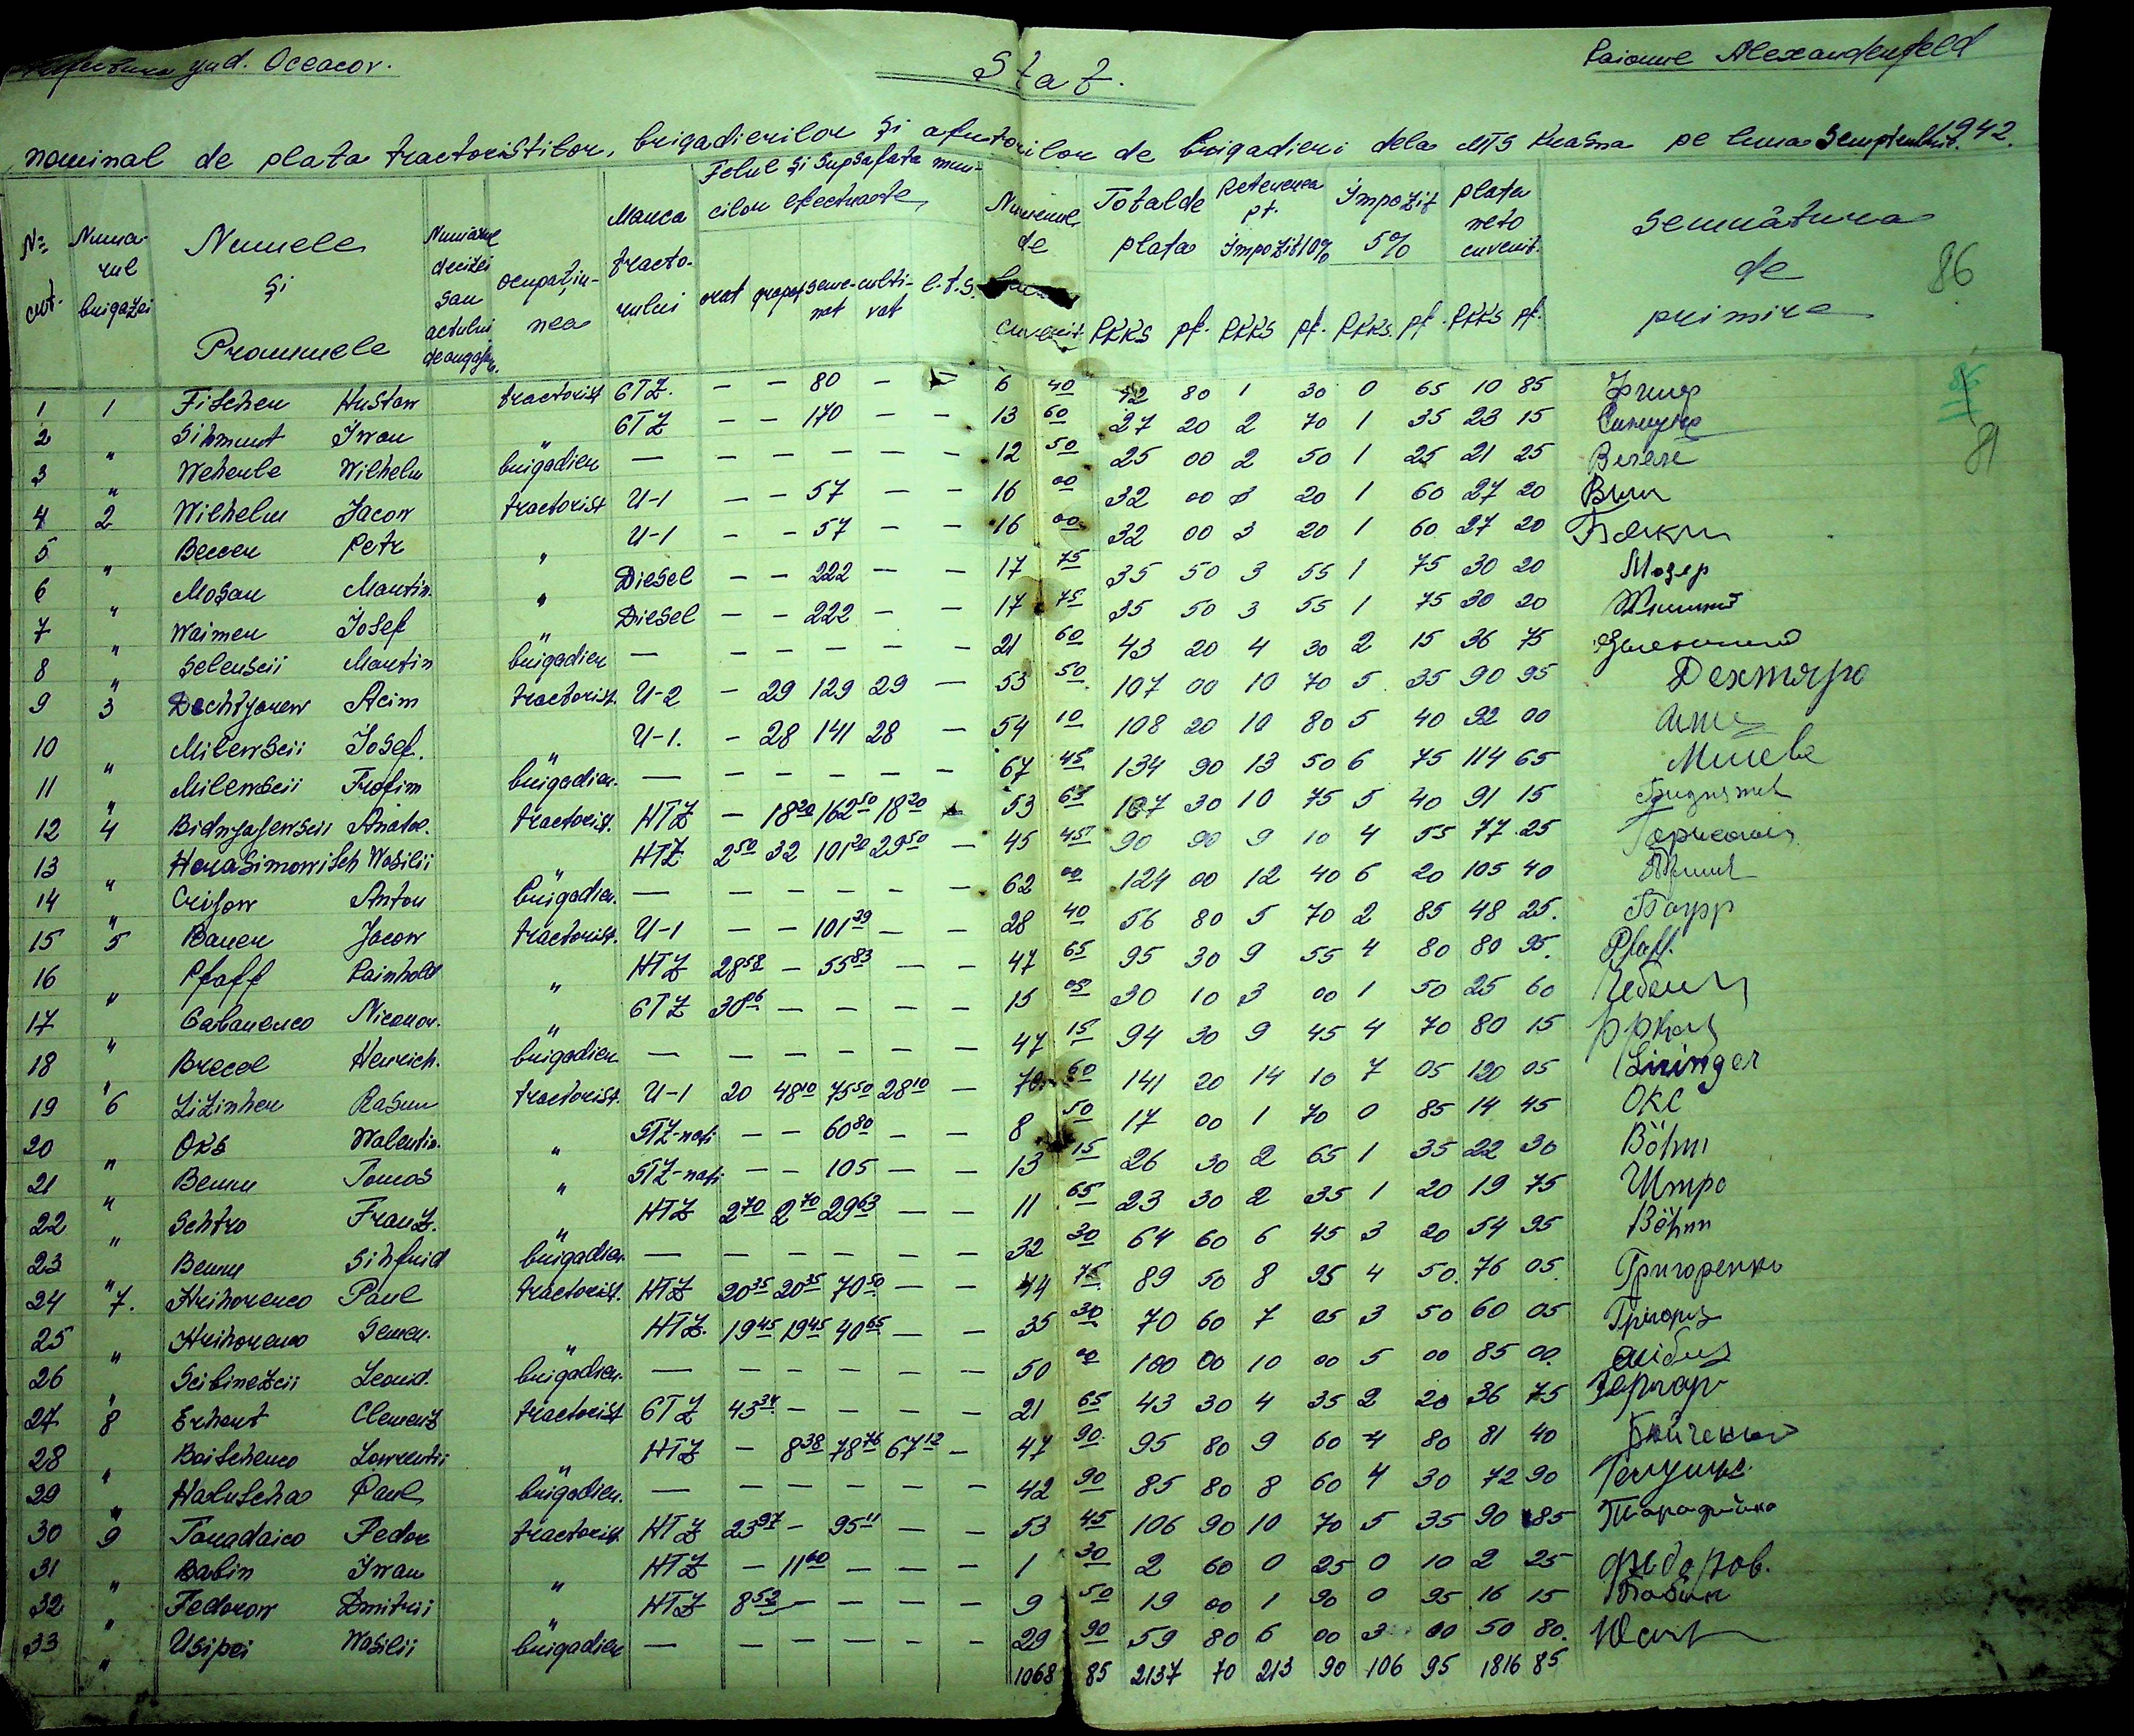 jud. Oceacov.
Stat.
Raionul Alexandenfeld
nominal de plata tractoristilor, brigadierilor şi ajutorilor de brigadieri dela MTS Krasna pe luna Semptembrie 1942.
№ crt. Numarul brigăzei Numele şi Pronumele Numărul deciziei sau actului de angajare ocupaţiunea Marca tractorului Felul şi Supsafata muncilor efectuate orat grapat semenat cultivat l.t.s. Numerul de cuvenit Total de plata RKKS pf. Retenerea pt. impozit 10% RKKS pf. Impozit 5% RKKS. pf. plata neto cuvenit. RKKS pf. Semnătura de primire
86
1 1 Fischer Hustow tractorist GTZ. — — 80 — — 6 40 12 80 1 30 0 65 10 85
2 " Sihmunt Iwan " GTZ — — 170 — — 13 60 27 20 2 70 1 35 23 15
3 " Weherle Wilhelm brigadier — — — — — — 12 50 25 00 2 50 1 25 21 25
81
4 2 Wilhelm Jacow tractorist U-1 — — 57 — — 16 00 32 00 3 20 1 60 27 20
5 " Becker Petr " U-1 — — 57 — — 16 00 32 00 3 20 1 60 27 20
6 " Mosar Martin. " Diesel — — 222 — — 17 75 35 50 3 55 1 75 30 20 Мозер
7 " Waimer Iosef " Diesel — — 222 — — 17 75 35 50 3 55 1 75 30 20
8 " Selenscii Martin brigadier — — — — — — 21 60 43 20 4 30 2 15 36 75
9 3 Dechtjarew Acim tractorist. U-2 — 29 129 29 — 53 50 107 00 10 70 5 35 90 95 Дехтяро
10 " Milewscii Iosef. " U-1. — 28 141 28 — 54 10 108 20 10 80 5 40 92 00
11 " Milewscii Trofim brigadier. — — — — — — 67 45 134 90 13 50 6 75 114 65 Милеве
12 4 Bidnjajewscii Anatol. tractorist. HTZ — 18 20 162 50 18 20 — 53 65 107 30 10 75 5 40 91 15
13 " Herasimowitsch Wasilii " HTZ 2 50 32 101 20 29 50 — 45 45 90 90 9 10 4 55 77 25
14 " Crijow Anton brigadier. — — — — — — 62 00 124 00 12 40 6 20 105 40
15 5 Bauer Jacow tractorist. U-1 — — 101 29 — — 28 40 56 80 5 70 2 85 48 25. Баурр
16 " Pfaff Rainhold " HTZ 28 58 — 55 83 — — 47 65 95 30 9 55 4 80 80 95. Pfaff.
17 " Cabanenco Niconor. " GTZ 30 06 — — — — 15 05 30 10 3 00 1 50 25 60
18 " Brecel Henrich. brigadier — — — — — — 47 15 94 30 9 45 4 70 80 15
19 6 Lizinher Rasun tractorist. U-1 20 48 10 75 50 28 10 — 70 60 141 20 14 10 7 05 120 05 Lizinger
20 " Oks Walentin. " STZ-nati — — 60 80 — — 8 50 17 00 1 70 0 85 14 45 Окс
21 " Bemm Tomas " STZ-nati — — 105 — — 13 15 26 30 2 65 1 35 22 30 Böhm
22 " Schtro Franz. " HTZ 2 70 2 70 29 63 — — 11 65 23 30 2 35 1 20 19 75 Штро
23 " Bemm Sihfrid brigadier. — — — — — — 32 30 64 60 6 45 3 20 54 95 Böhm
24 7. Hrihorenco Paul tractorist. HTZ 20 35 20 35 70 50 — — 44 75 89 50 8 95 4 50. 76 05. Григоренко
25 " Hrihorenco Semen. " HTZ. 19 45 19 45 40 65 — — 35 30 70 60 7 05 3 50 60 05
26 " Scibinezcii Leonid. brigadier. — — — — — — 50 00 100 00 10 00 5 00 85 00.
27 8 Erhart Clemenz tractorist GTZ 43 34 — — — — 21 65 43 30 4 35 2 20 36 75
28 " Boitchenco Lowrentii " HTZ — 8 38 78 76 67 12 — 47 90 95 80 9 60 4 80 81 40 Бойченко
29 " Haluscha Paul brigadier. — — — — — — 42 90 85 80 8 60 4 30 72 90
30 9 Taradaico Fedor tractorist HTZ 23 97 — 95 11 — — 53 45 106 90 10 70 5 35 90 85 Тарадайко
31 " Babin Iwan " HTZ — 11 60 — — — 1 30 2 60 0 25 0 10 2 25 Федоров.
32 " Fedorow Dmitrii " HTZ 8 52 — — — — 9 50 19 00 1 90 0 95 16 15 Бабин
33 " Usipei Wasilii brigadier — — — — — — 29 90 59 80 6 00 3 00 50 80.
1068 85 2137 70 213 90 106 95 1816 85